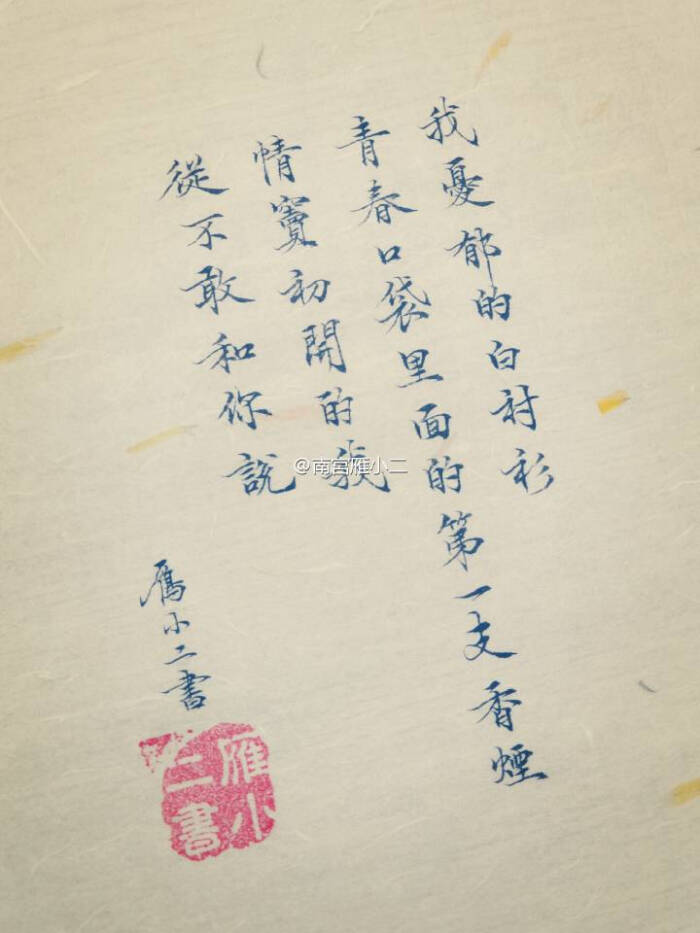 我憂郁的白衬衫
青春口袋里面的第一支香煙
情竇初開的我
從不敢和你說
雁小二書
雁小
二書
@南宫雁小二